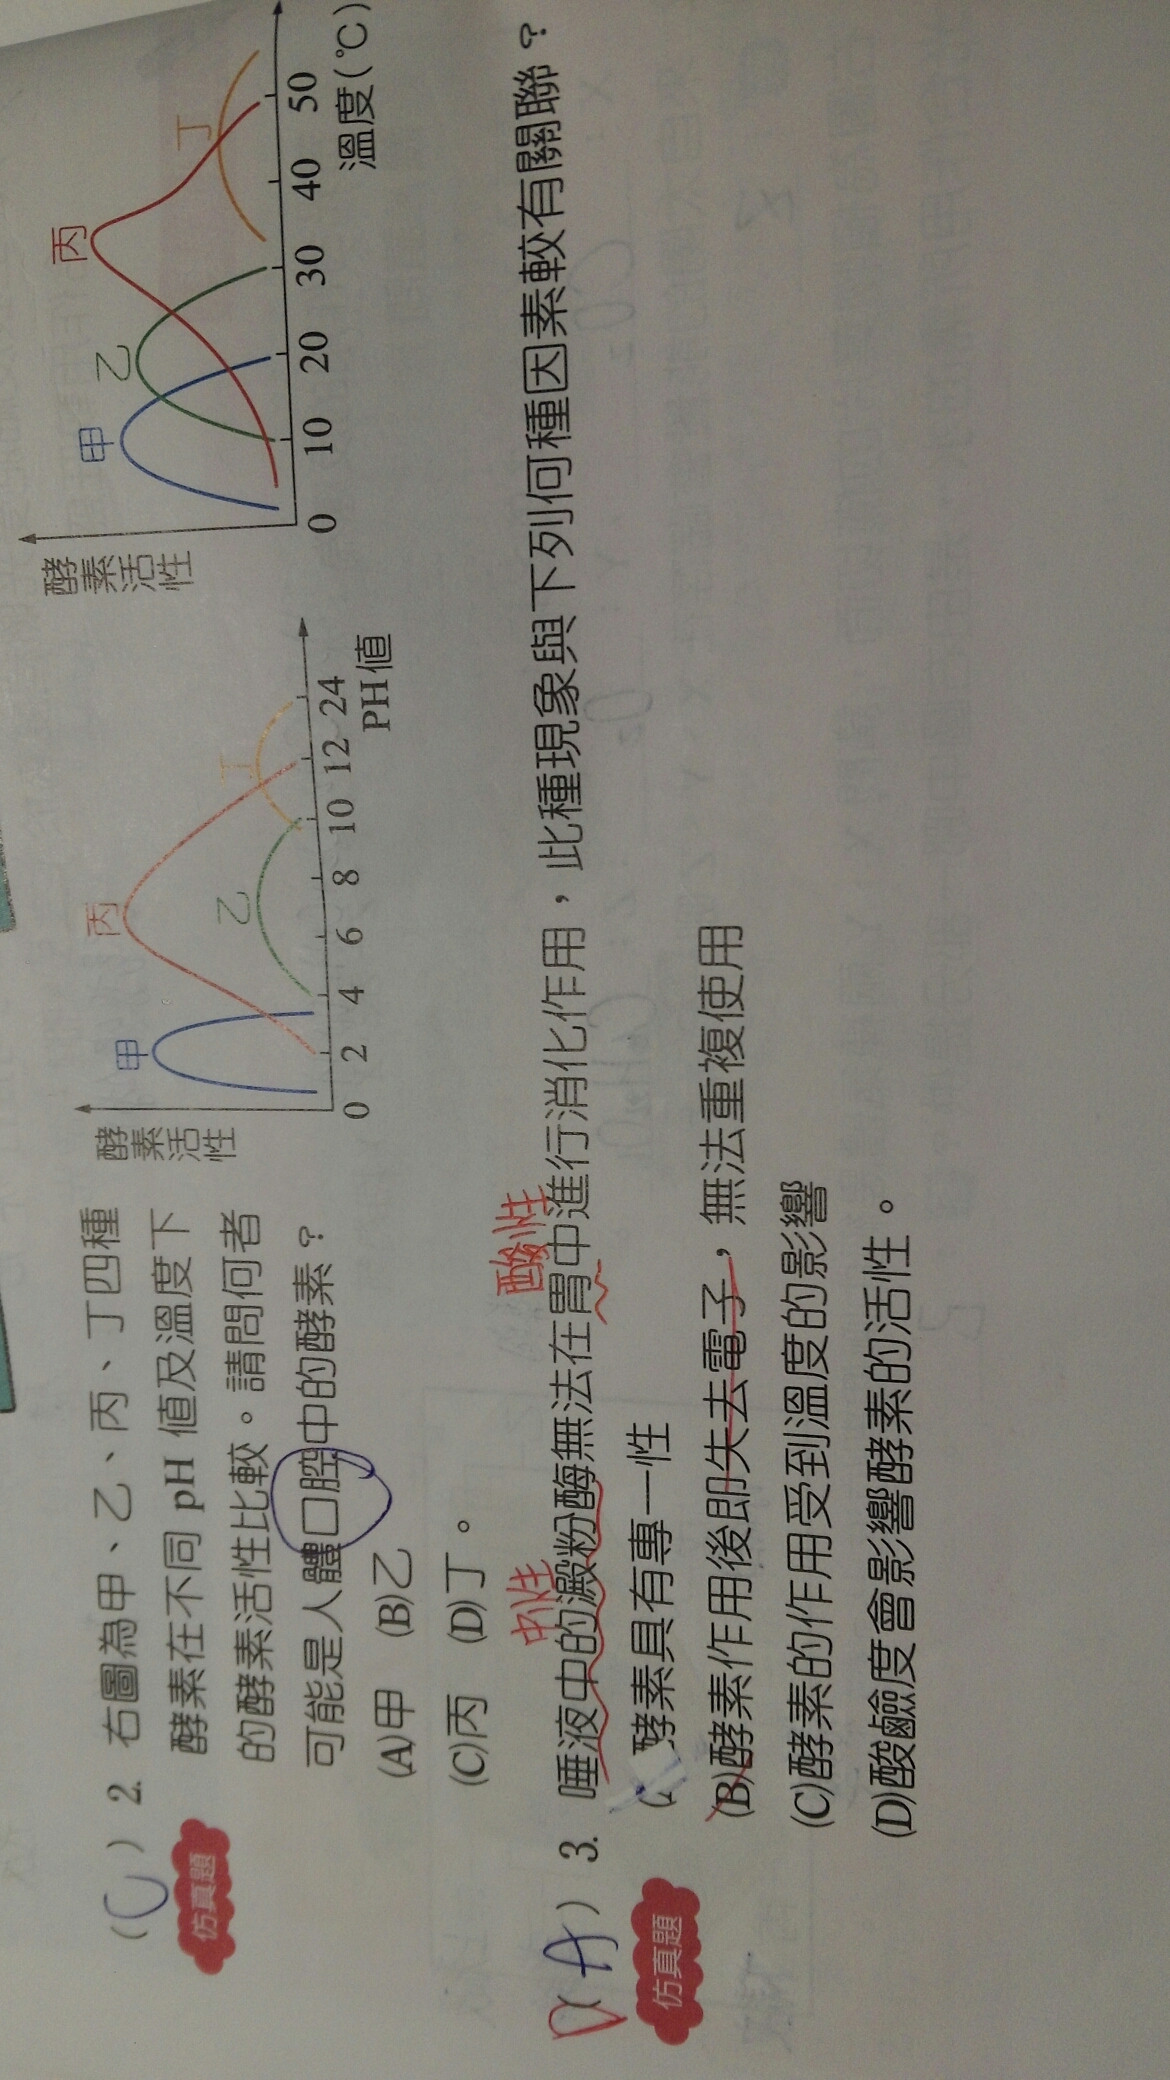 (C) 2. 右圖為甲、乙、丙、丁四種
仿真題
酵素在不同 pH 值及溫度下
的酵素活性比較。請問何者
可能是人體口腔中的酵素？
(A)甲 (B)乙
(C)丙 (D)丁。
酵素活性
甲
丙
乙
丁
0 2 4 6 8 10 12 24
PH值
酵素活性
甲
乙
丙
丁
0 10 20 30 40 50
溫度(℃)
中性 酸性
D (A) 3. 唾液中的澱粉酶無法在胃中進行消化作用，此種現象與下列何種因素較有關聯？
仿真題
酵素具有專一性
(B)酵素作用後即失去電子，無法重複使用
(C)酵素的作用受到溫度的影響
(D)酸鹼度會影響酵素的活性。